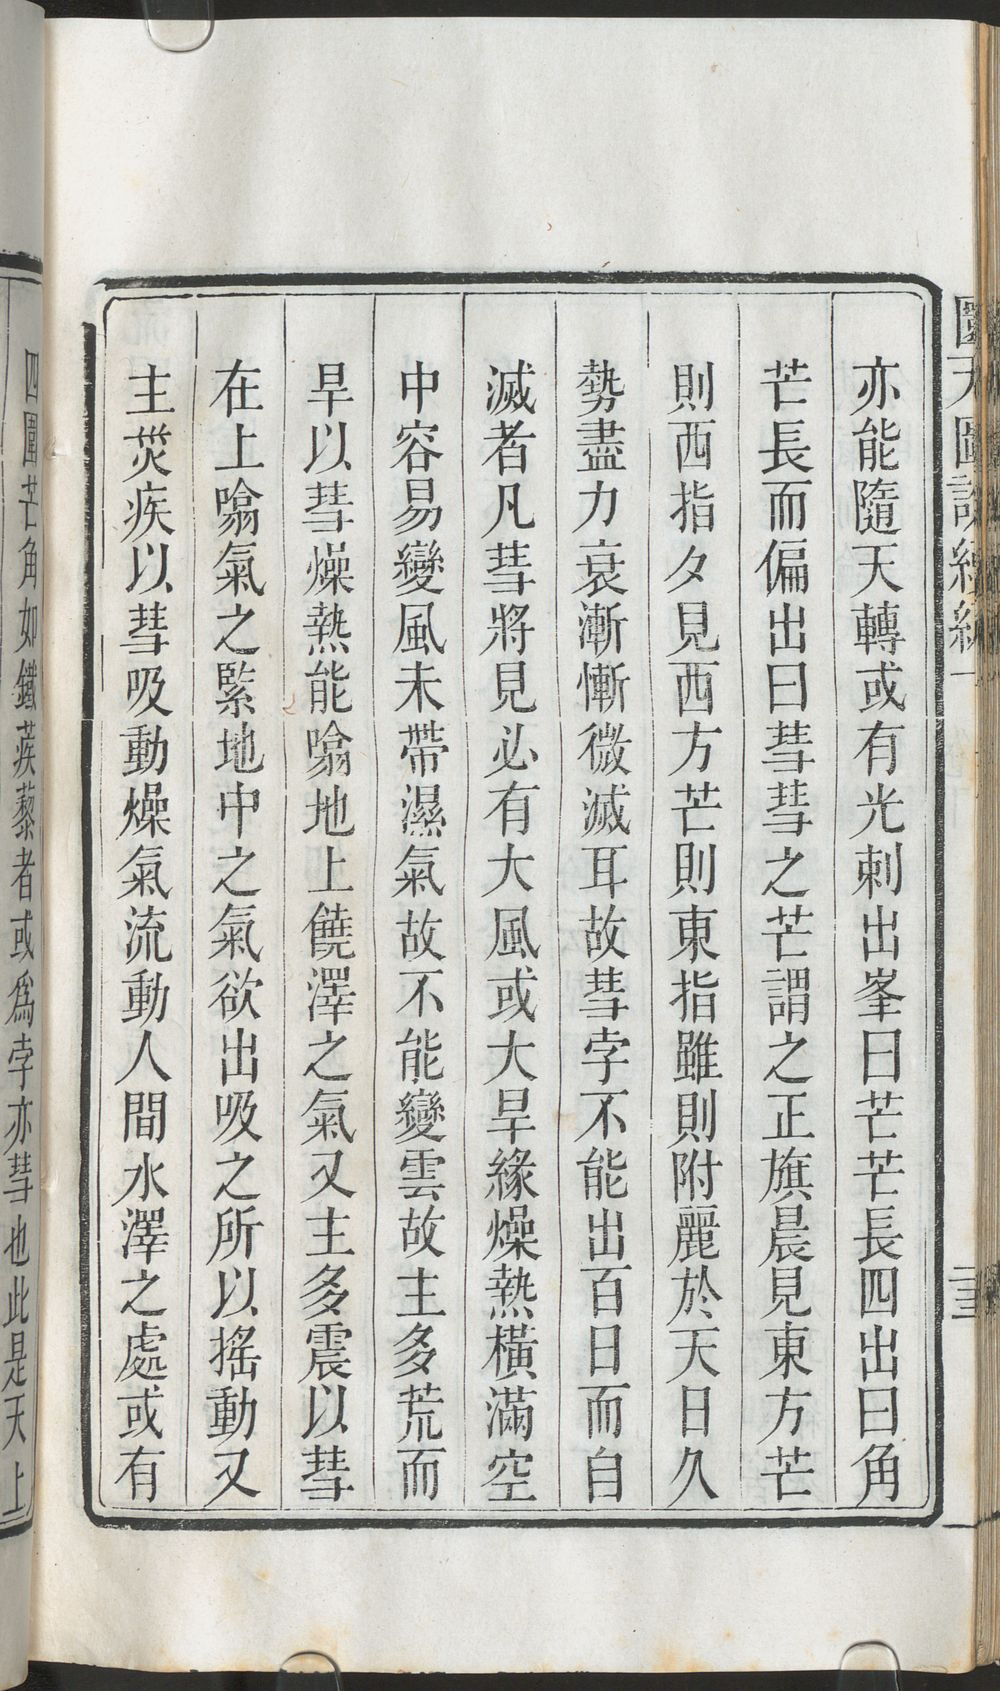 亦能隨天轉或有光刺出峯曰芒芒長四出曰角
芒長而偏出曰彗彗之芒謂之正旗晨見東方芒
則西指夕見西方芒則東指雖則附麗於天日久
勢盡力衰漸慚微滅耳故彗孛不能出百日而自
滅者凡彗將見必有大風或大旱緣燥熱橫滿空
中容易變風未帶濕氣故不能變雲故主多荒而
旱以彗燥熱能噏地上饒澤之氣又主多震以彗
在上噏氣之緊地中之氣欲出吸之所以搖動又
主災疾以彗吸動燥氣流動人間水澤之處或有
四圍芒角如鐵蒺藜者或爲孛亦彗也此是天上